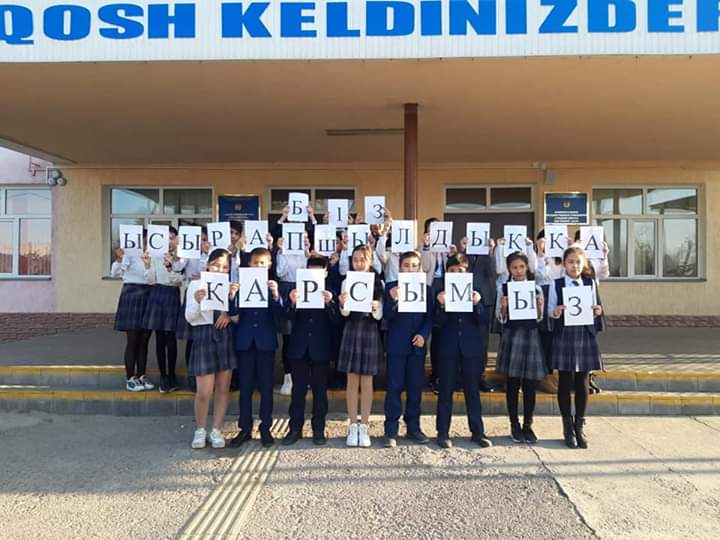 QOSH KELDINIZDER
БІЗ
ЫСЫРАПШЫЛДЫҚҚА
ҚАРСЫМЫЗ